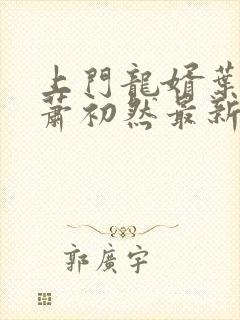 上門龍婿葉
蕭初然最新
郭廣宇